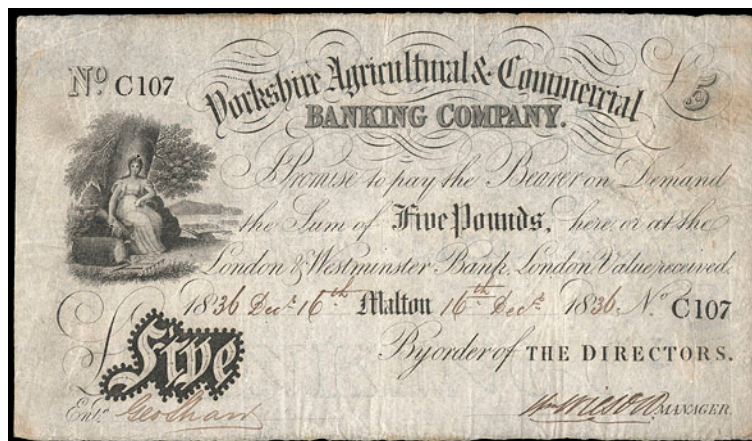 No C107
Yorkshire Agricultural & Commercial
£5
BANKING COMPANY.
I Promise to pay the Bearer on Demand
the Sum of Five Pounds, here or at the
London & Westminster Bank, London Value received.
1836 Decr 16th Malton 16th Decr 1836 No C107
£Five
By order of THE DIRECTORS.
Entd Geo Shaw
Wm Wilson MANAGER.